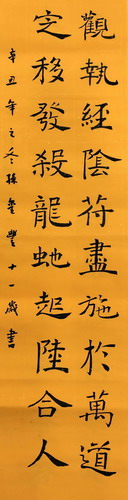 觀執經陰苻盡施於萬道
㝎移發殺龍虵起陸合人
辛丑年之冬孫豐十一歲書